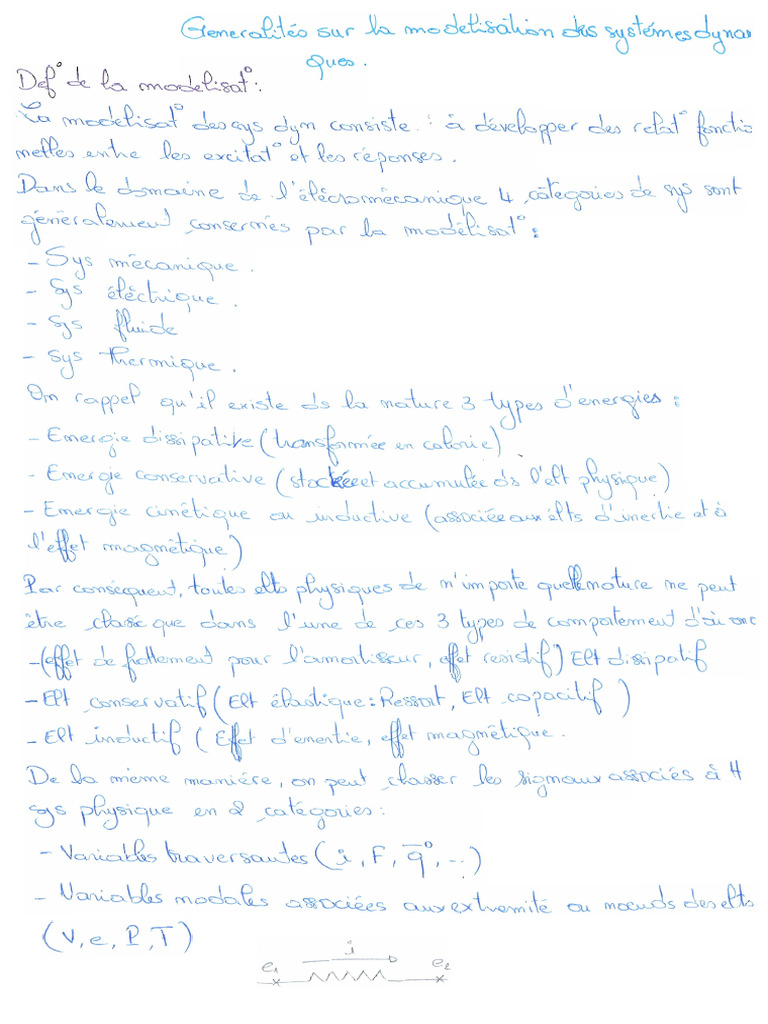 Generalités sur la modelisation des systémes dynami
ques.
Def° de la modelisat°:
La modelisat° des sys dyn consiste : à développer des relat° fonctio
nnelles entre les excitat° et les réponses.
Dans le domaine de l'élécromécanique 4 catégories de sys sont
généralement consernés par la modélisat° :
- Sys mécanique.
- Sys éléctrique.
- Sys fluide
- Sys thermique.
On rappel qu'il existe ds la nature 3 types d'energies :
- Energie dissipative (transformée en calorie)
- Energie conservative (stockée et accumulée ds l'elt physique)
- Energie cinétique ou inductive (associée aux élts d'inertie et à
l'effet magnétique)
Par conséquent, toutes elts physiques de n'importe quelle nature ne peut
être classé que dans l'une de ces 3 types de comportement d'où onc
- (effet de frottement pour l'amortisseur, effet resistif) Elt dissipatif
- Elt conservatif (Elt élastique : Ressort, Elt capacitif)
- Elt inductif (Effet d'enertie, effet magnétique.
De la même maniére, on peut classer les signaux associés à 4
sys physique en 2 catégories :
- Variables traversantes (i, F, q°, ...)
- Variables nodales associées aux extremité ou nœuds des elts
(V, e, P, T)
i
e1 e2